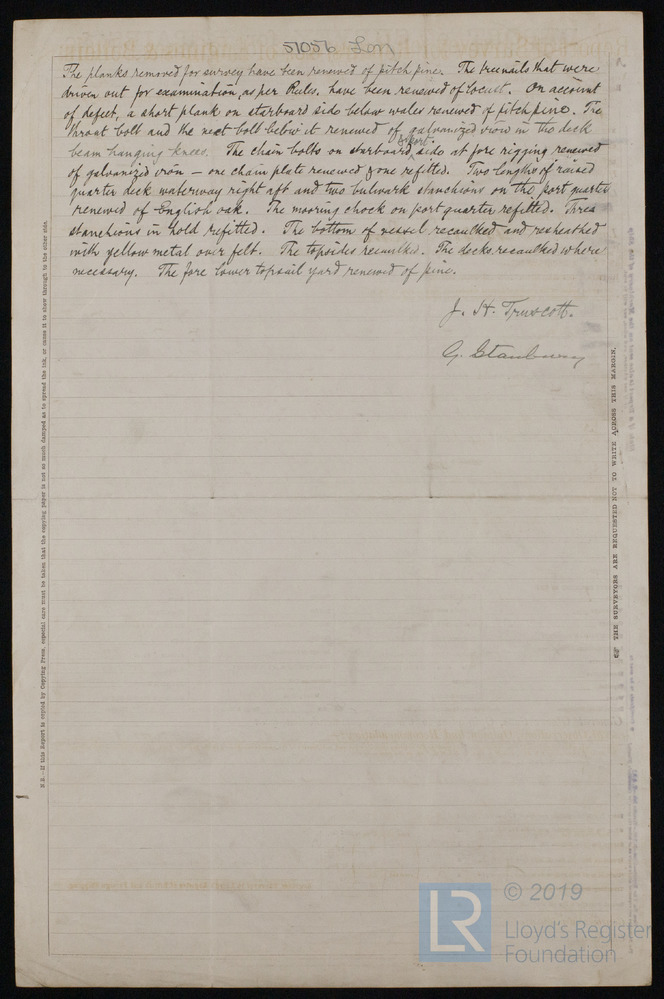 51056 Lon
The planks removed for survey have been renewed of pitch pine. The treenails that were
driven out for examination, as per Rules, have been renewed of locust. On account
of defect, a short plank on starboard side below wales renewed of pitch pine. The
throat bolt and the next bolt below it renewed of galvanized iron in two deck
beam hanging knees. The chain bolts on starboard & port side at fore rigging renewed
of galvanized iron – one chain plate renewed & one refitted. Two lengths of raised
quarter deck waterway right aft and two bulwark stanchions on the port quarter
renewed of English oak. The mooring chock on port quarter refitted. Three
stanchions in hold refitted. The bottom of vessel recaulked and resheathed
with yellow metal over felt. The topsides recaulked. The decks recaulked where
necessary. The fore lower topsail yard renewed of pine.
J. H. Truscott.
G. Stanbury
N.B.—If this Report is copied by Copying Press, especial care must be taken that the copying paper is not so much damped as to spread the ink, or cause it to show through to the other side.
THE SURVEYORS ARE REQUESTED NOT TO WRITE ACROSS THIS MARGIN.
LR
© 2019
Lloyd's Register
Foundation